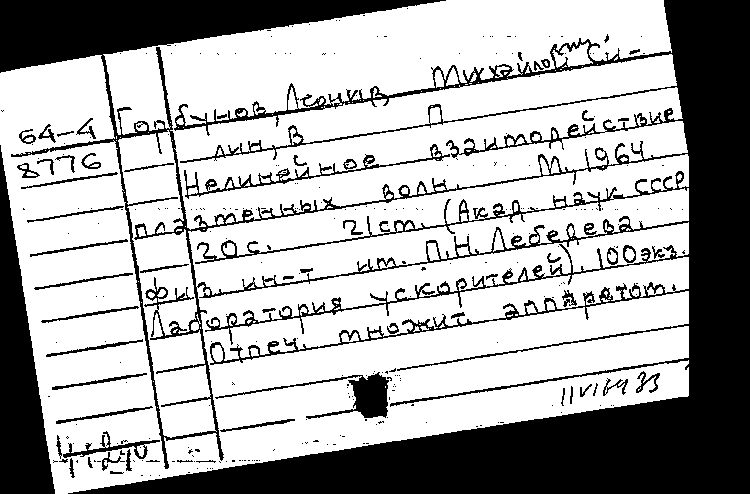 64-4
8776
Горбунов, Леонид Михайлович, Си-
лин, В П
Нелинейное взаимодействие
плазменных волн. М., 1964.
20 с. 21 см. (Акад. наук СССР
физ. ин-т им. П.Н. Лебедева.
Лаборатория ускорителей). 100 экз.
Отпеч. множит. аппаратом.